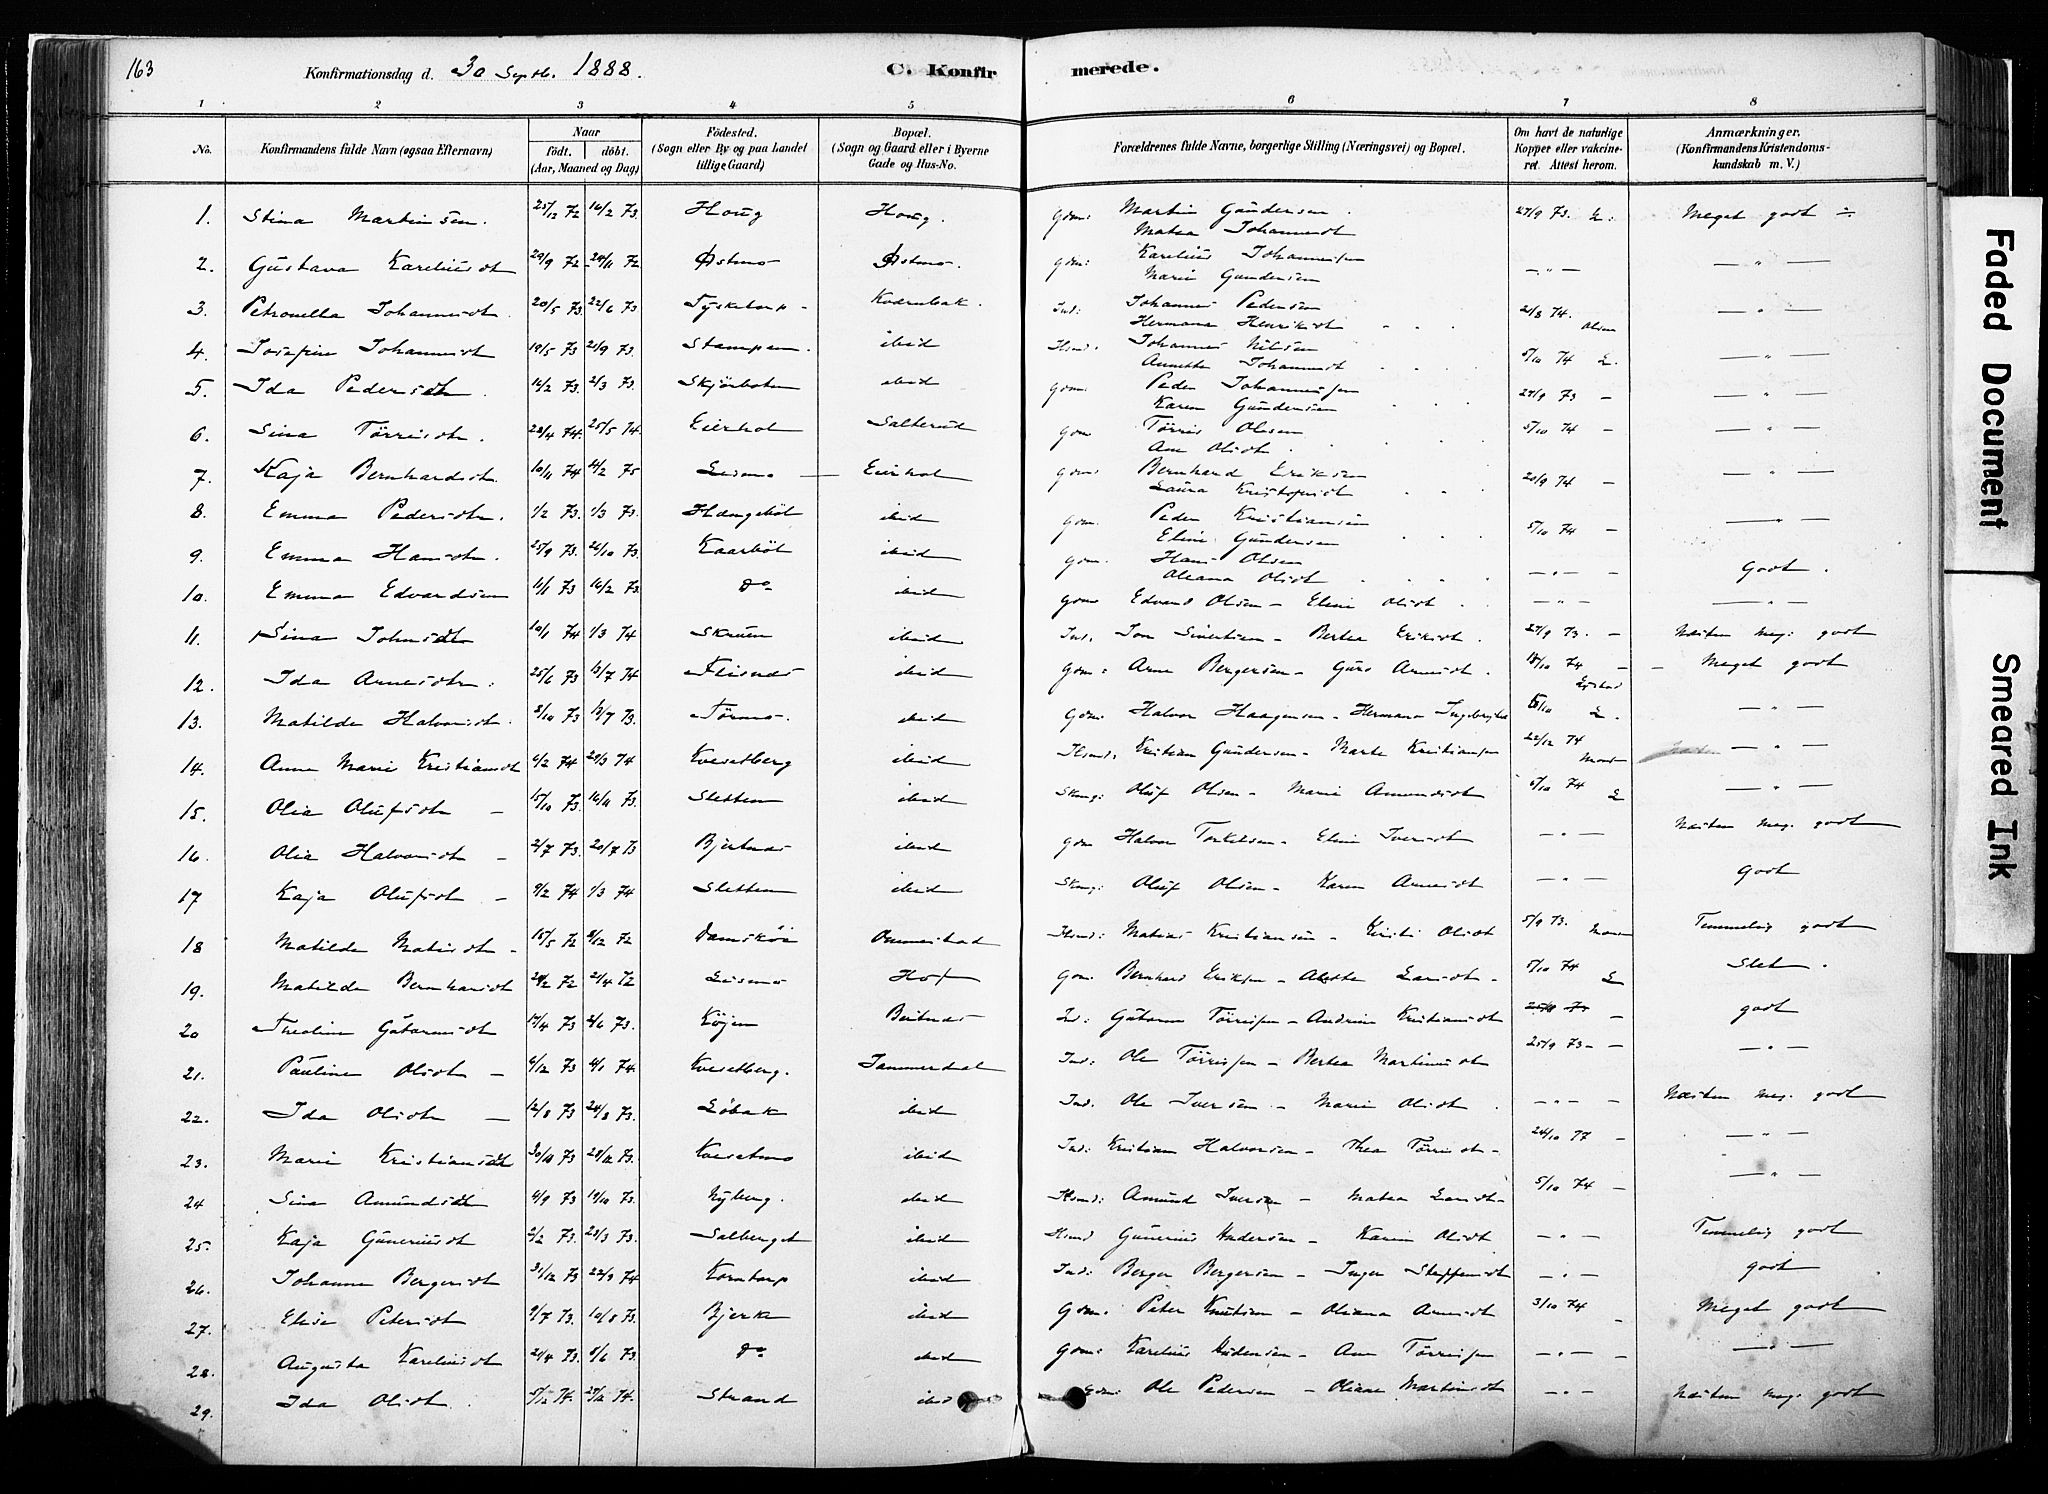 163
Konfirmationsdag d. 30 Septb. 1888. C. Konfirmerede.
1 2 3 4 5 6 7 8
No. Konfirmandens fulde Navn (ogsaa Efternavn) Naar født. døbt. (Aar, Maaned og Dag) Fødested. (Sogn eller By og paa Landet tillige Gaard) Bopæl. (Sogn og Gaard eller i Byerne Gade og Hus-No. Forældrenes fulde Navne, borgerlige Stilling (Næringsvei) og Bopæl. Om havt de naturlige Kopper eller vakcineret. Attest herom. Anmærkninger. (Konfirmandens Kristendomskundskab m. V.)
1. Stina Martinsen. 25/12 72 16/2 73. Houg Houg. Gdm: Martin Gundersen. 27/9 73. L. Meget godt
Matea Johannesdt
2. Gustava Kareliusdt 29/9 72 24/11 72 Østmo Østmo. Gdm: Karelius Johannessen — " — — " —
Marie Gundersen
3. Petronella Johannesdt. 20/5 73 22/6 73 Tysketorp Kvernbak. Ind: Johannes Pedersen 21/8 74. Olsen — " —
Hermana Henriksdt
4. Josefine Johannesdt 19/5 73 21/9 73. Stampen. ibid Johannes Nilsen 5/10 74 L. — " —
Annette Johannesdt
5. Ida Pedersdt. 16/2 73. 2/3 73. Skjörboten ibid Gdm: Peder Johannessen 27/9 73 — — " —
Karen Gundersen
6. Sina Törrisdt. 28/4 74. 25/5 74. Eierhol Salterud Gdm Törris Olsen 5/10 74 — — " —
Ane Olsdt.
7. Kaja Bernhardsdt. 10/11 74 14/2 75 Leismo Eierhol Gdm: Bernhard Eriksen 20/9 74 — — " —
Laura Kristofersdt
8. Emma Pedersdtr. 1/2 73. 1/3 73. Hængeböl ibid Gdm. Peder Kristiansen 5/10 74 — — " —
Eline Gundersen
9. Emma Hansdt. 25/9 73. 26/10 73. Kaarböl ibid Gdm. Hans Olsen — " — Godt.
Oleana Olsdt
10. Emma Edvardsen 11/1 73 16/2 73. Do ibid Gdm Edvard Olsen — Eline Olsdt. — " — — " —
11. Sina Johnsdt 10/1 74 1/3 74 Skruen ibid Ind. Jon Sivertsen — Bertea Eriksdt. 27/9 73. — Næsten meg. godt
12. Ida Arnesdtr. 25/6 73 13/7 74 Flisnes ibid Gdm: Arne Bergersen — Guro Arnesdt. 18/10 74 — Meget godt
13. Matilde Halvorsdt. 2/10 73 12/7 73. Törmo. ibid Gdm: Halvor Haagensen — Hermana 5/10 L. — " —
14. Anne Marie Kristiansdt 6/2 74 29/3 74 Kvesetberg ibid Kristian Gundersen — Marte Kristiansen 22/12 74 — " —
15. Olia Olufsdt — 15/10 73. 16/11 73. Sletten ibid Oluf Olsen — Marie Amundsdt 5/10 74 L — " —
16. Olia Halvorsdt — 2/7 73. 20/7 73 Bjertnes ibid Gdm Halvor Torkelsen — Eline Iversdt — " — Næsten meg. godt
17 Kaja Olufsdt — 9/2 74 1/3 74 Sletten ibid Oluf Olsen — Karen Arnesdt — " — Godt
18 Matilde Matisdt — 15/5 72 8/12 72 Damskói Matias Kristiansen — Kirsti Olsdt 5/9 73. Temmelig godt
19. Matilde Bernhardsdt 28/2 72 21/4 72 Leismo Hof Gdm. Bernhard Eriksen — Larsdt — 5/10 74 L Slet.
20 Theoline Gutormsdt 17/4 73 2/6 73. Köjen Beitnes Ind: Gutorm Törrisen — Andrine Kristiansdt — godt
21. Pauline Olsdt — 6/12 73 4/1 74. Kvesetberg. Tammerdal Ind: Ole Törrissen — Bertea Martinusdt 25/9 73 — — — " —
22. Ida Olsdt — 12/8 73 24/8 73. Löbak ibid Ind. Ole Iversen — Marie Olsdt. — " — Næsten meg. godt
23. Marie Kristiansdt 30/10 73 28/12 73. Kvesetmo ibid Ind: Kristian Halvorsen — Thea Törrisdt — 24/10 77 — — " —
24 Sina Amundsdt 6/9 73 19/10 73. Nyberg. ibid Amund Iversen — Matea Larsdt — 5/10 74 — — " —
25. Kaja Guneriusdt 2/2 73. 23/3 73. Solberget ibid Gunerius Andersen — Karen Olsdt — " — Temmelig godt
26. Johanne Bergersdt 31/12 73 22/3 74 Korntorp ibid Ind: Berger Bergersen — Inger Steffensdt — " — godt
27. Elise Petersdt 9/7 73. 10/8 73. Bjerk ibid Gdm: Peter Knutsen — Oliana Arnesdt 3/10 74 — Meget godt
28. Augusta Kareliusdt 21/4 73. 8/6 73. Do ibid Gdm: Karelius Andersen — Ane Törrissen — " — — " —
29. Ida Olsdt. 5/12 74. 27/12 74. Strand ibid Gdm: Ole Pedersen — Oliane Martinsdt — " — Næsten meg. godt
Faded Document
Smeared Ink